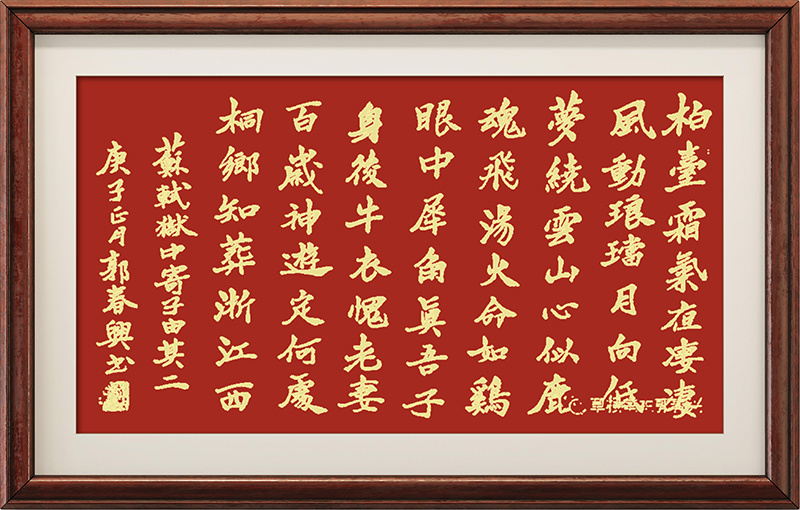 柏臺霜氣夜凄凄
風動琅璫月向低
夢繞雲山心似鹿
魂飛湯火命如鷄
眼中犀角眞吾子
身後牛衣愧老妻
百歲神遊定何處
桐鄉知葬浙江西
蘇軾獄中寄子由其二
庚子正月郭春興书